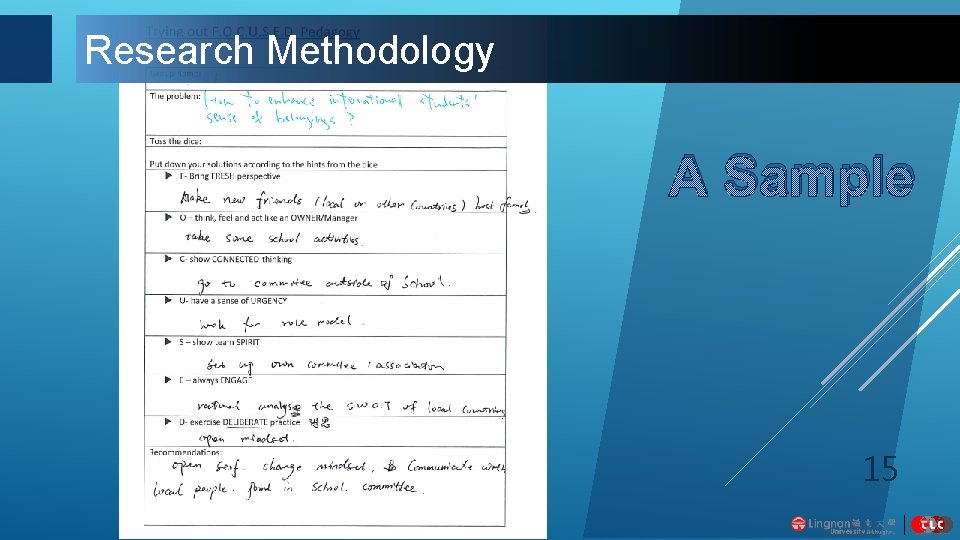 Trying out F.O.C.U.S.E.D. Pedagogy
Research Methodology
Group Name:
The problem: How to enhance international students'
sense of belongings?
Toss the dice:
Put down your solutions according to the hints from the dice
F- Bring FRESH perspective
Make new friends (local or other countries) host
O – think, feel and act like an OWNER/Manager
take some school activities.
C- show CONNECTED thinking
go to committee outside of school.
U- have a sense of URGENCY
look for role model.
S – show team SPIRIT
Set up own committee / association
E – always ENGAGE
rational analyse the S.W.O.T of local
D- exercise DELIBERATE practice
open mindset.
Recommendations:
open self. change mindset. Communicate with
local people. join in school committee.
A Sample
15
Lingnan 嶺南大學
University
CLC